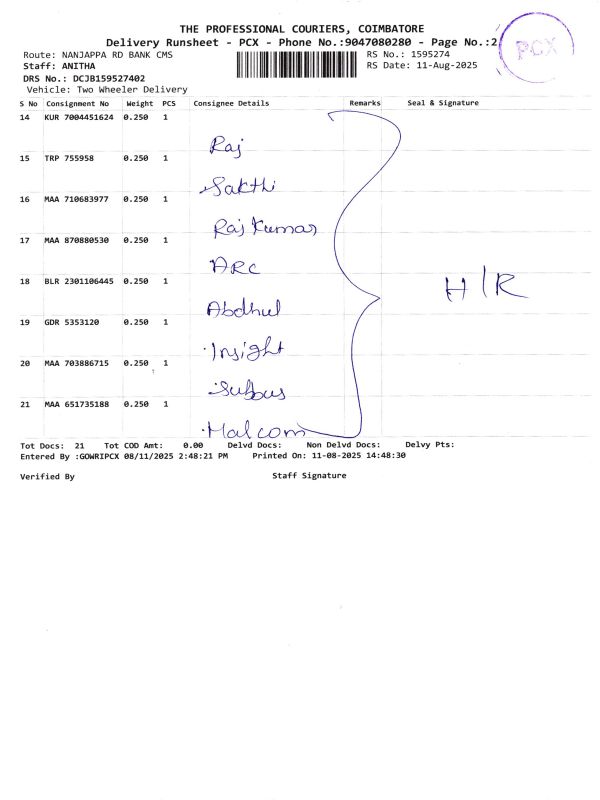 THE PROFESSIONAL COURIERS, COIMBATORE
Delivery Runsheet - PCX - Phone No.:9047080280 - Page No.:2
PCX
Route: NANJAPPA RD BANK CMS RS No.: 1595274
Staff: ANITHA RS Date: 11-Aug-2025
DRS No.: DCJB159527402
Vehicle: Two Wheeler Delivery
S No Consignment No Weight PCS Consignee Details Remarks Seal & Signature
14 KUR 7004451624 0.250 1
Raj
15 TRP 755958 0.250 1
Sakthi
16 MAA 710683977 0.250 1
Raj Kumar
17 MAA 870880530 0.250 1
ARC
18 BLR 2301106445 0.250 1
H/R
Abdhul
19 GDR 5353120 0.250 1
Insight
20 MAA 703886715 0.250 1
21 MAA 651735188 0.250 1
Malcom
Tot Docs: 21 Tot COD Amt: 0.00 Delvd Docs: Non Delvd Docs: Delvy Pts:
Entered By :GOWRIPCX 08/11/2025 2:48:21 PM Printed On: 11-08-2025 14:48:30
Verified By Staff Signature